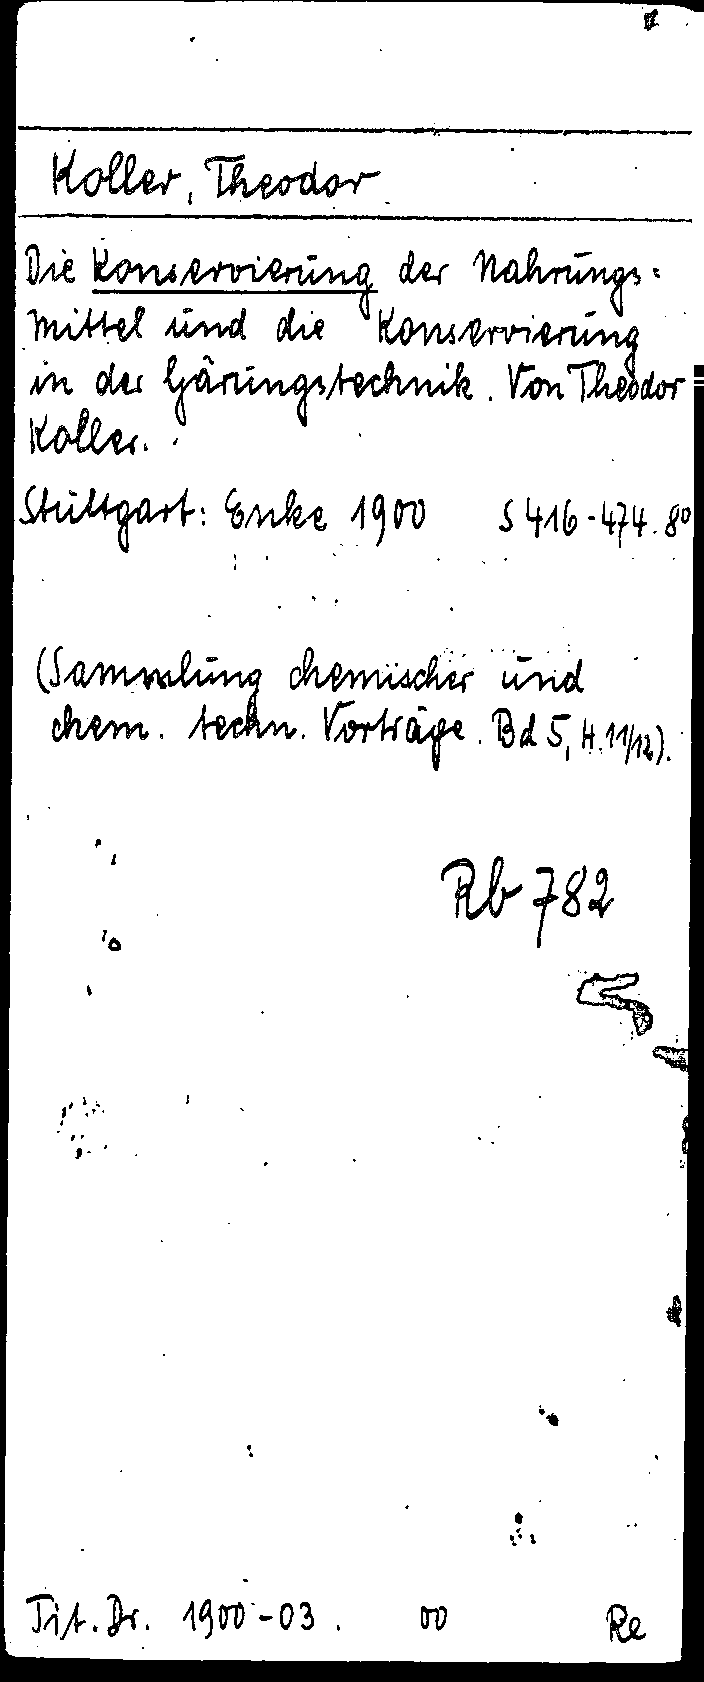 Koller, Theodor
Die Konservierung der Nahrungs=
mittel und die Konservierung
in der Gärungstechnik. Von Theodor
Koller.
Stuttgart: Enke 1900 S 416-474. 8°
(Sammlung chemischer und
chem. techn. Vorträge. Bd 5, H. 11/12).
Rb 782
Tit. Dr. 1900-03. 00 Re